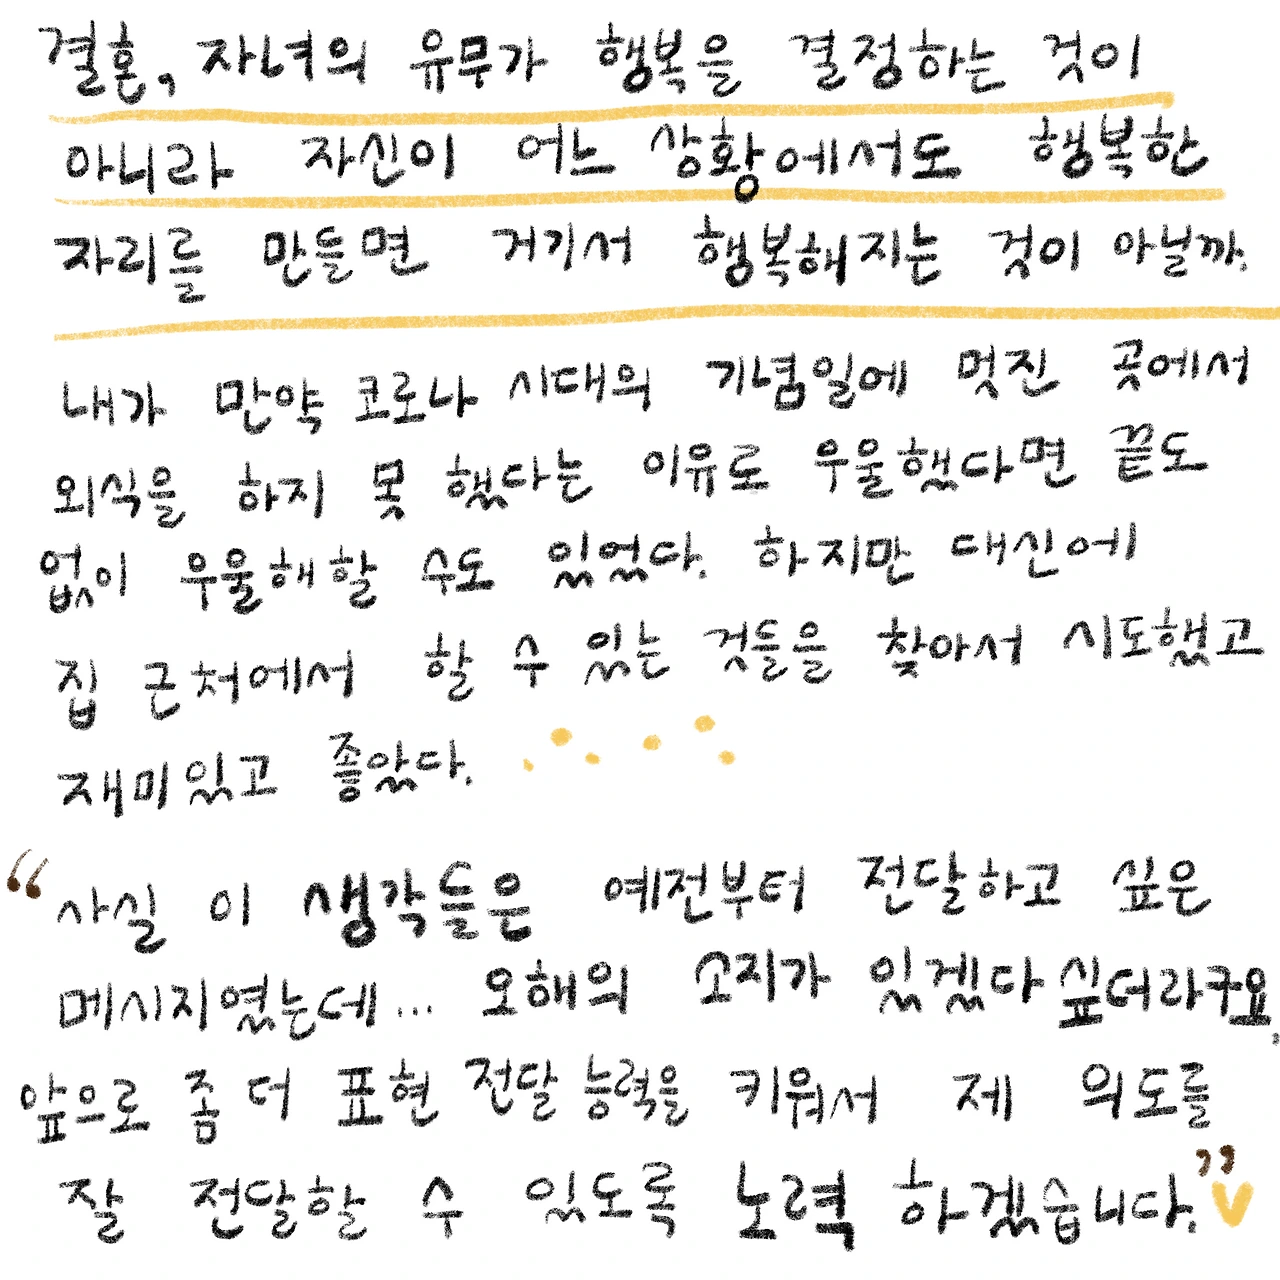 결혼, 자녀의 유무가 행복을 결정하는 것이
아니라 자신이 어느 상황에서도 행복한
자리를 만들면 거기서 행복해지는 것이 아닐까.
내가 만약 코로나 시대의 기념일에 멋진 곳에서
외식을 하지 못 했다는 이유로 우울했다면 끝도
없이 우울해할 수도 있었다. 하지만 대신에
집 근처에서 할 수 있는 것들을 찾아서 시도했고
재미있고 좋았다.
“사실 이 생각들은 예전부터 전달하고 싶은
메시지였는데... 오해의 소지가 있겠다 싶더라구요.
앞으로 좀 더 표현 전달 능력을 키워서 제 의도를
잘 전달할 수 있도록 노력 하겠습니다.”